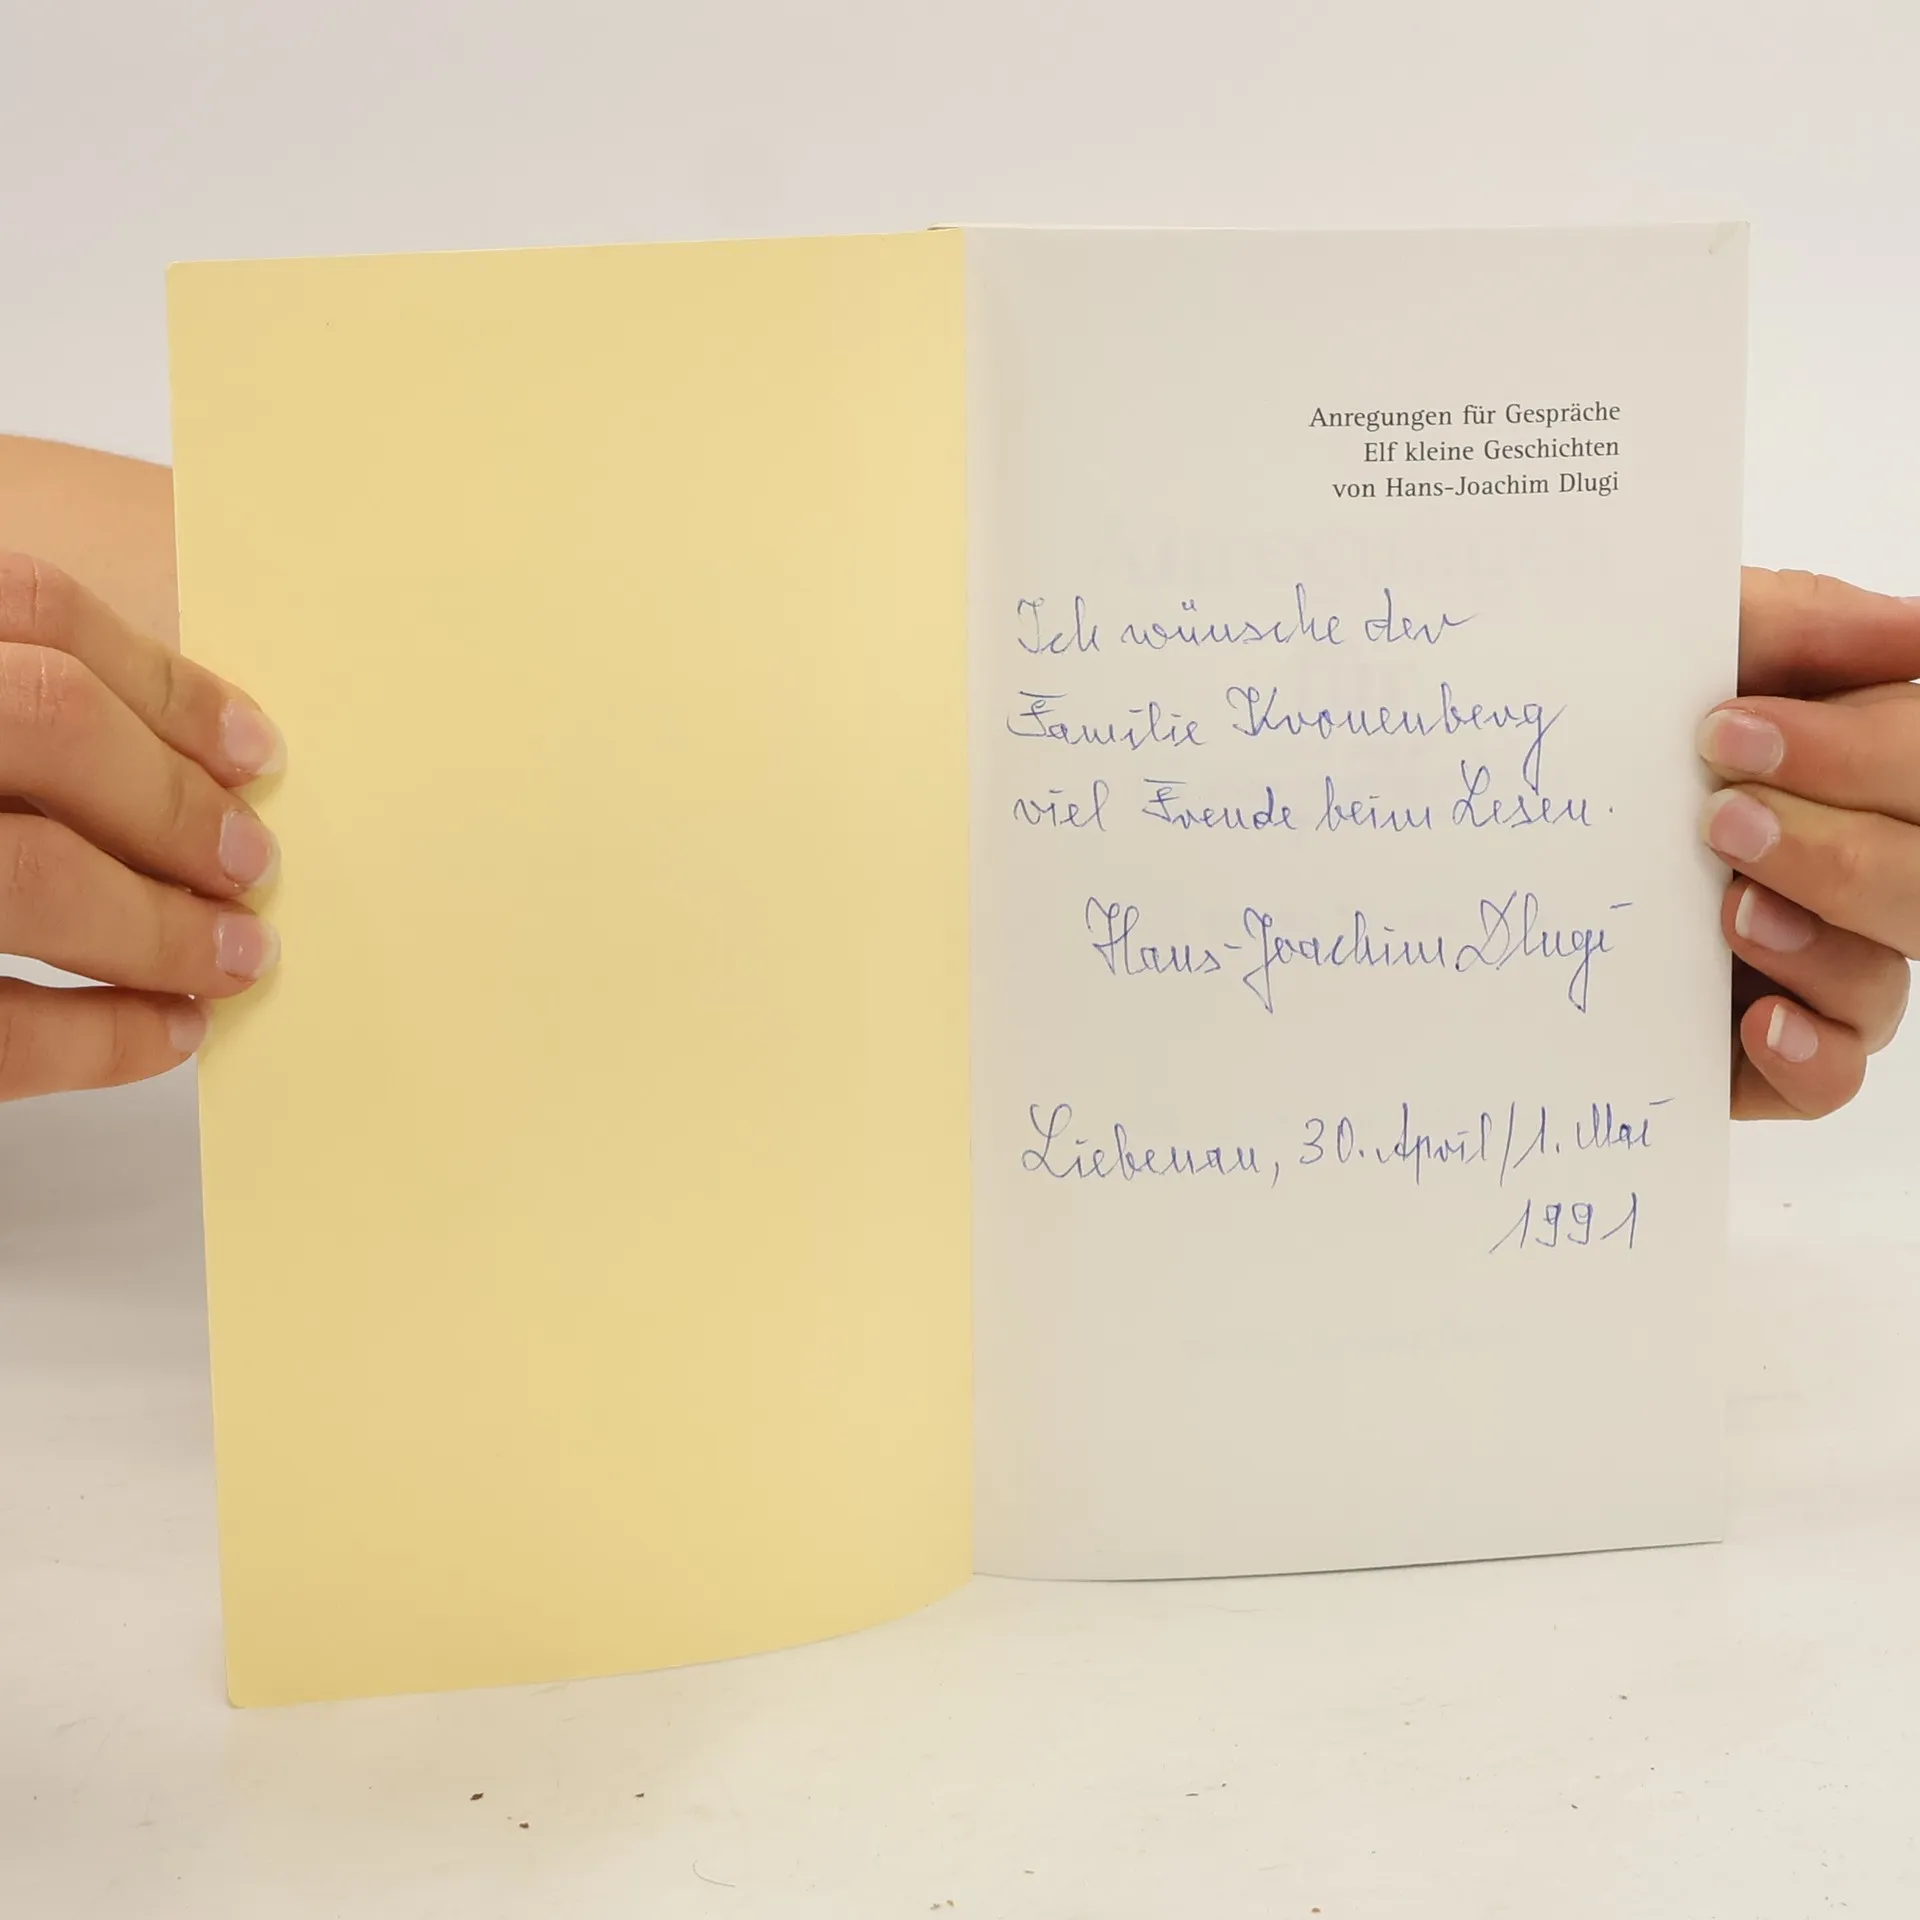 Anregungen für Gespräche
Elf kleine Geschichten
von Hans-Joachim Dlugi
Ich wünsche der
Familie Kronenberg
viel Freude beim Lesen.
Hans-Joachim Dlugi
Liebenau, 30. April/1. Mai
1991